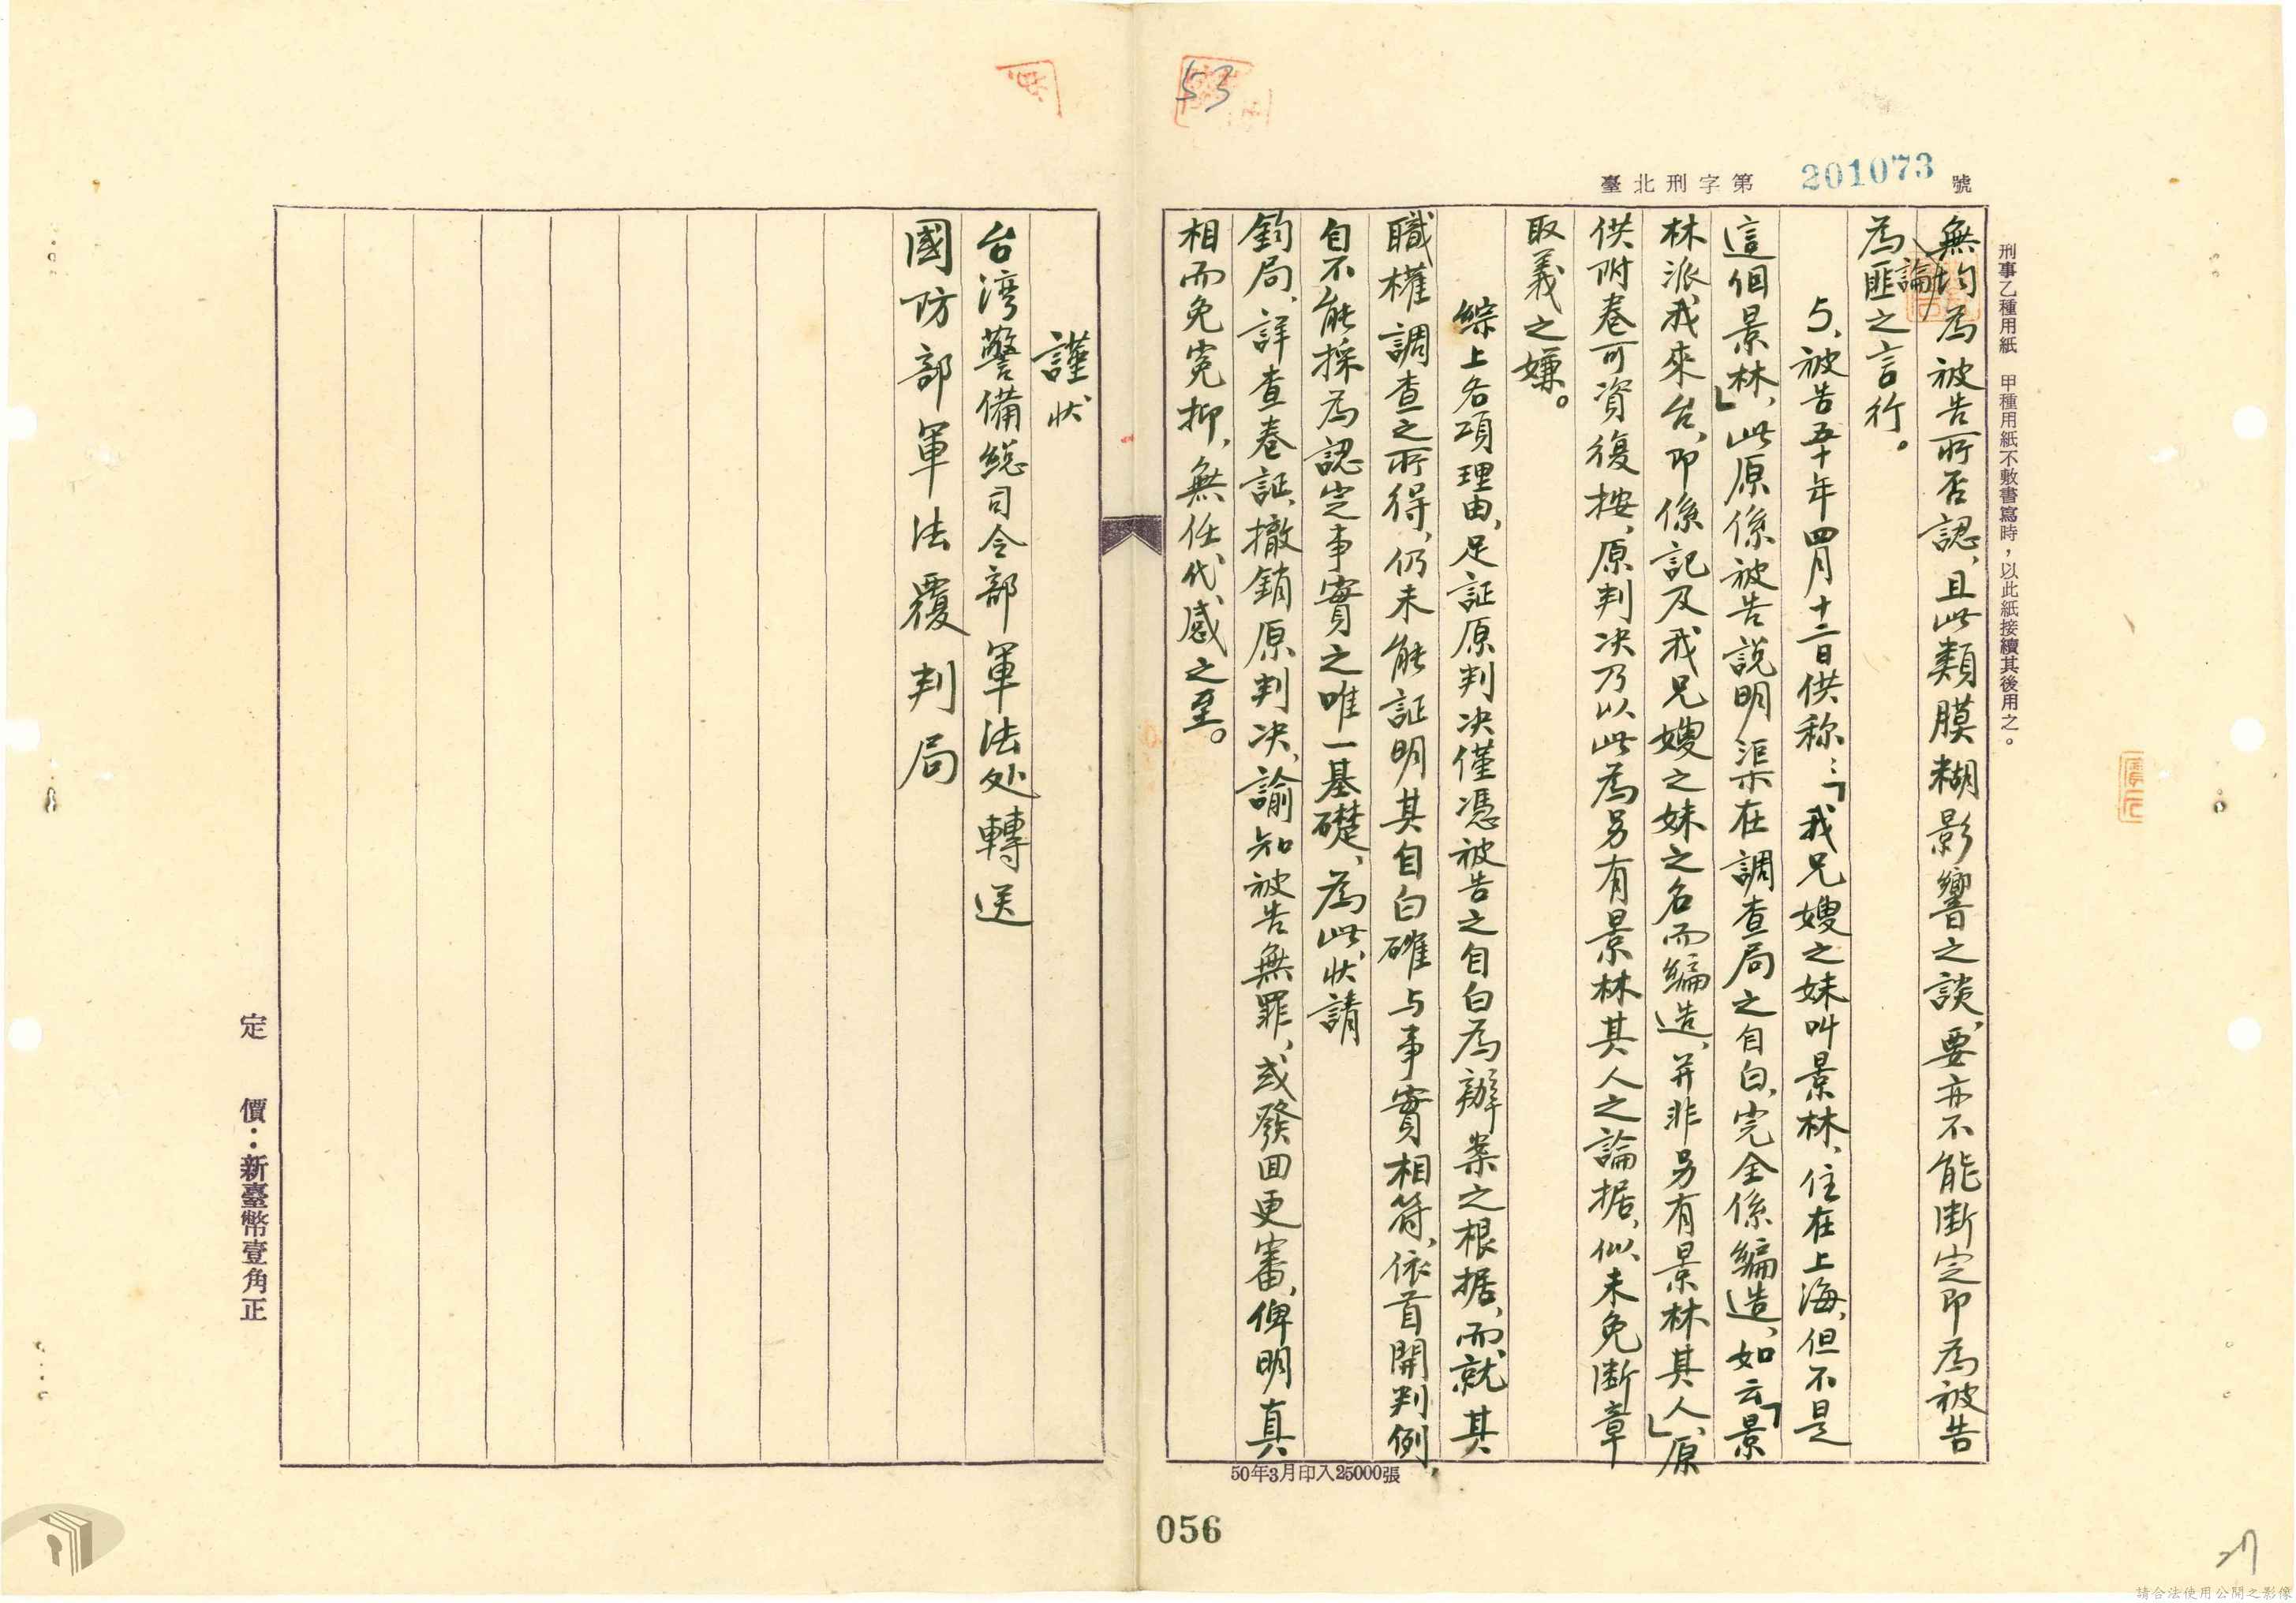 53
臺北刑字第 201073 號
刑事乙種用紙 甲種用紙不敷書寫時，以此紙接續其後用之。
無均為被告所否認、且此類膜糊影響之談、要亦不能断定即為被告
論
為匪之言行。
5、被告五十年四月十二日供称：「我兄嫂之妹叫景林、住在上海、但不是
這個景林」、此原係被告說明渠在調查局之自白、完全係編造、如云「景
林派我來台、即係記及我兄嫂之妹之名而編造、并非另有景林其人」、原
供附卷可資復按、原判决乃以此為另有景林其人之論据、似未免断章
取義之嫌。
綜上各項理由、足証原判决僅憑被告之自白為辦案之根据、而就其
職權調查之所得、仍未能証明其自白確与事實相符、依首開判例、
自不能採為認定事實之唯一基礎、為此狀請
鈞局、詳查卷証、撤銷原判决、諭知被告無罪、或發回更審、俾明真
相而免寃抑、無任代感之至。
謹狀
台湾警備総司令部軍法处轉送
國防部軍法覆判局
定 價：新臺幣壹角正
50年3月印入25000張
056
請合法使用公開之影像